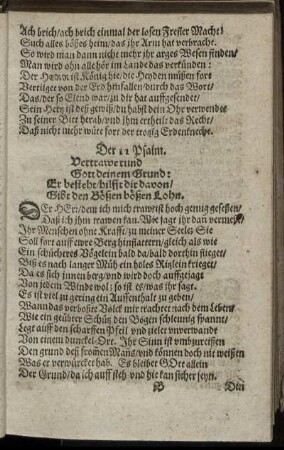 Ach brich/ach brich einmal der losen Fresser Macht/
Such alles böses heim/das ihr Arm hat verbracht.
So wird man dann nicht mehr ihr arges Wesen finden/
Man wird ohn alle hör im Lande das verkünden:
Der HErr ist König hie/die Heyden müßen fort
Vertilget von der Erd hinfallen/durch das Wort/
Das/der so Elend war/zu dir hat auffgesendet/
Sein Hertz ist deß gewiß/du habst dein Ohr verwendet
Zu seiner Bitt herab/und ihm ertheilt das Recht/
Daß nicht mehr wüte fort der trotzig Erdenknecht.
Der 11 Psalm.
Vertrawet und
Gott deinem Grund:
Er besteht/hilfft dir davon/
Gibt den Bösen bösen Lohn.
DEr HErr/dem ich mich traw ist hoch genug gesessen/
Daß ich ihm trawen kan. Wie sagt ihr dan vermessen/
Ihr Menschen ohne Krafft/zu meiner Seele: Sie
Soll fort auff ewre Berg hinflattern/gleich als wie
Ein schüchteres Vögelein bald da/bald dorthin flieget/
Biß es nach langer Müh ein holes Rißlein krieget/
Da es sich innen berg/und wird doch auffgejagt
Von jedem Winde wol; so ist es/was ihr sagt.
Es ist viel zu gering ein Auffenthalt zu geben/
Wann das verboßte Volck mir trachtet nach dem Leben/
Wie ein geübter Schütz den Bogen schleunig spannt/
Legt auff den scharffen Pfeil und zielet unverwandt
Von einem dunckel-Ort. Ihr Sinn ist umbzureissen
Den grund deß from̃en Mans/und können doch nit weissen
Was er verwürcket hab. Es bleibet GOtt allein
Der Grund/da ich auff steh und hie kan sicher seyn.
B Den